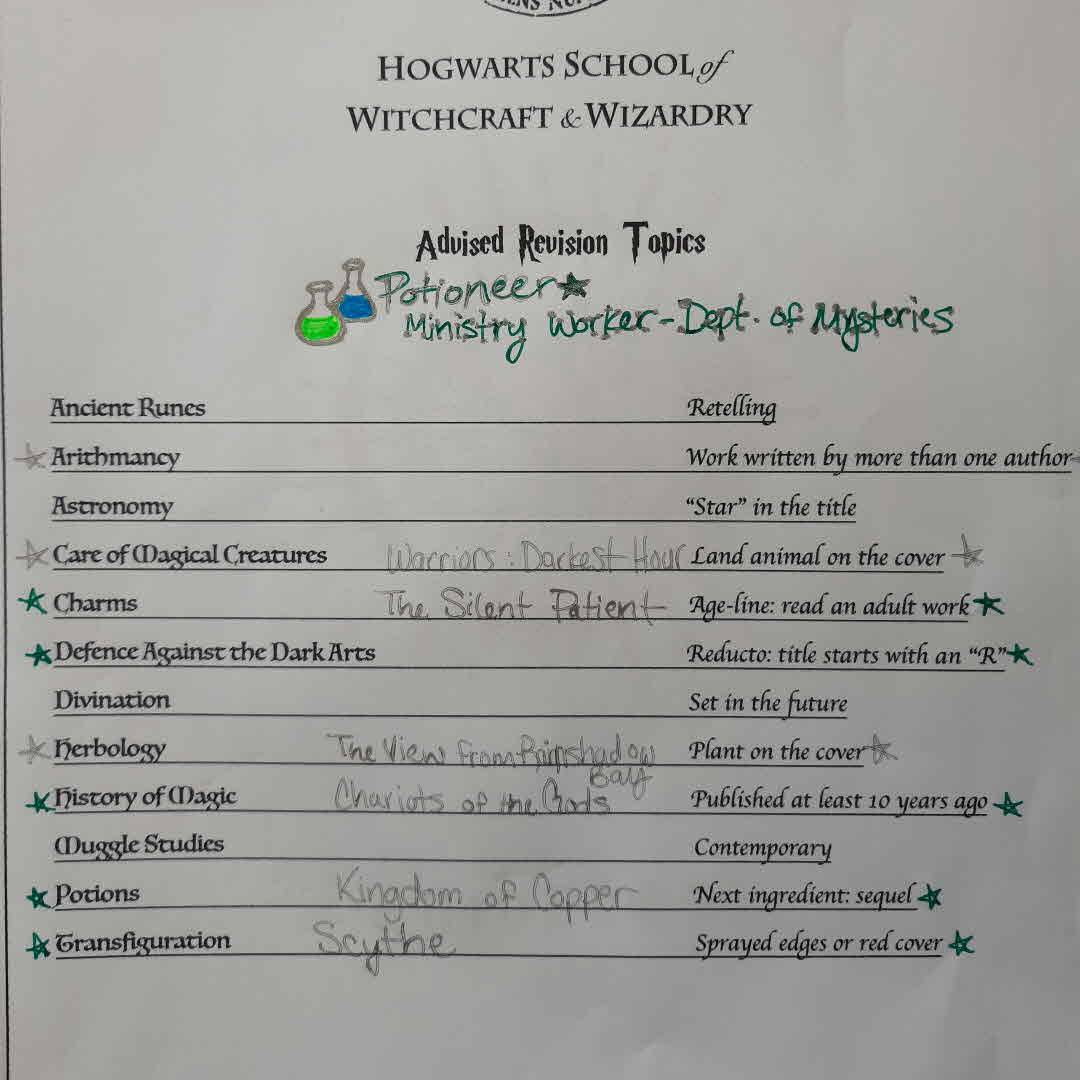 HOGWARTS SCHOOL of
WITCHCRAFT & WIZARDRY
Advised Revision Topics
Potioneer
Ministry Worker - Dept. of Mysteries
Ancient Runes Retelling
Arithmancy Work written by more than one author
Astronomy "Star" in the title
Care of Magical Creatures Warriors: Darkest Hour Land animal on the cover
Charms The Silent Patient Age-line: read an adult work
Defence Against the Dark Arts Reducto: title starts with an "R"
Divination Set in the future
Herbology The View From Rainshadow Bay Plant on the cover
History of Magic Chariots of the Gods Published at least 10 years ago
Muggle Studies Contemporary
Potions Kingdom of Copper Next ingredient: sequel
Transfiguration Scythe Sprayed edges or red cover